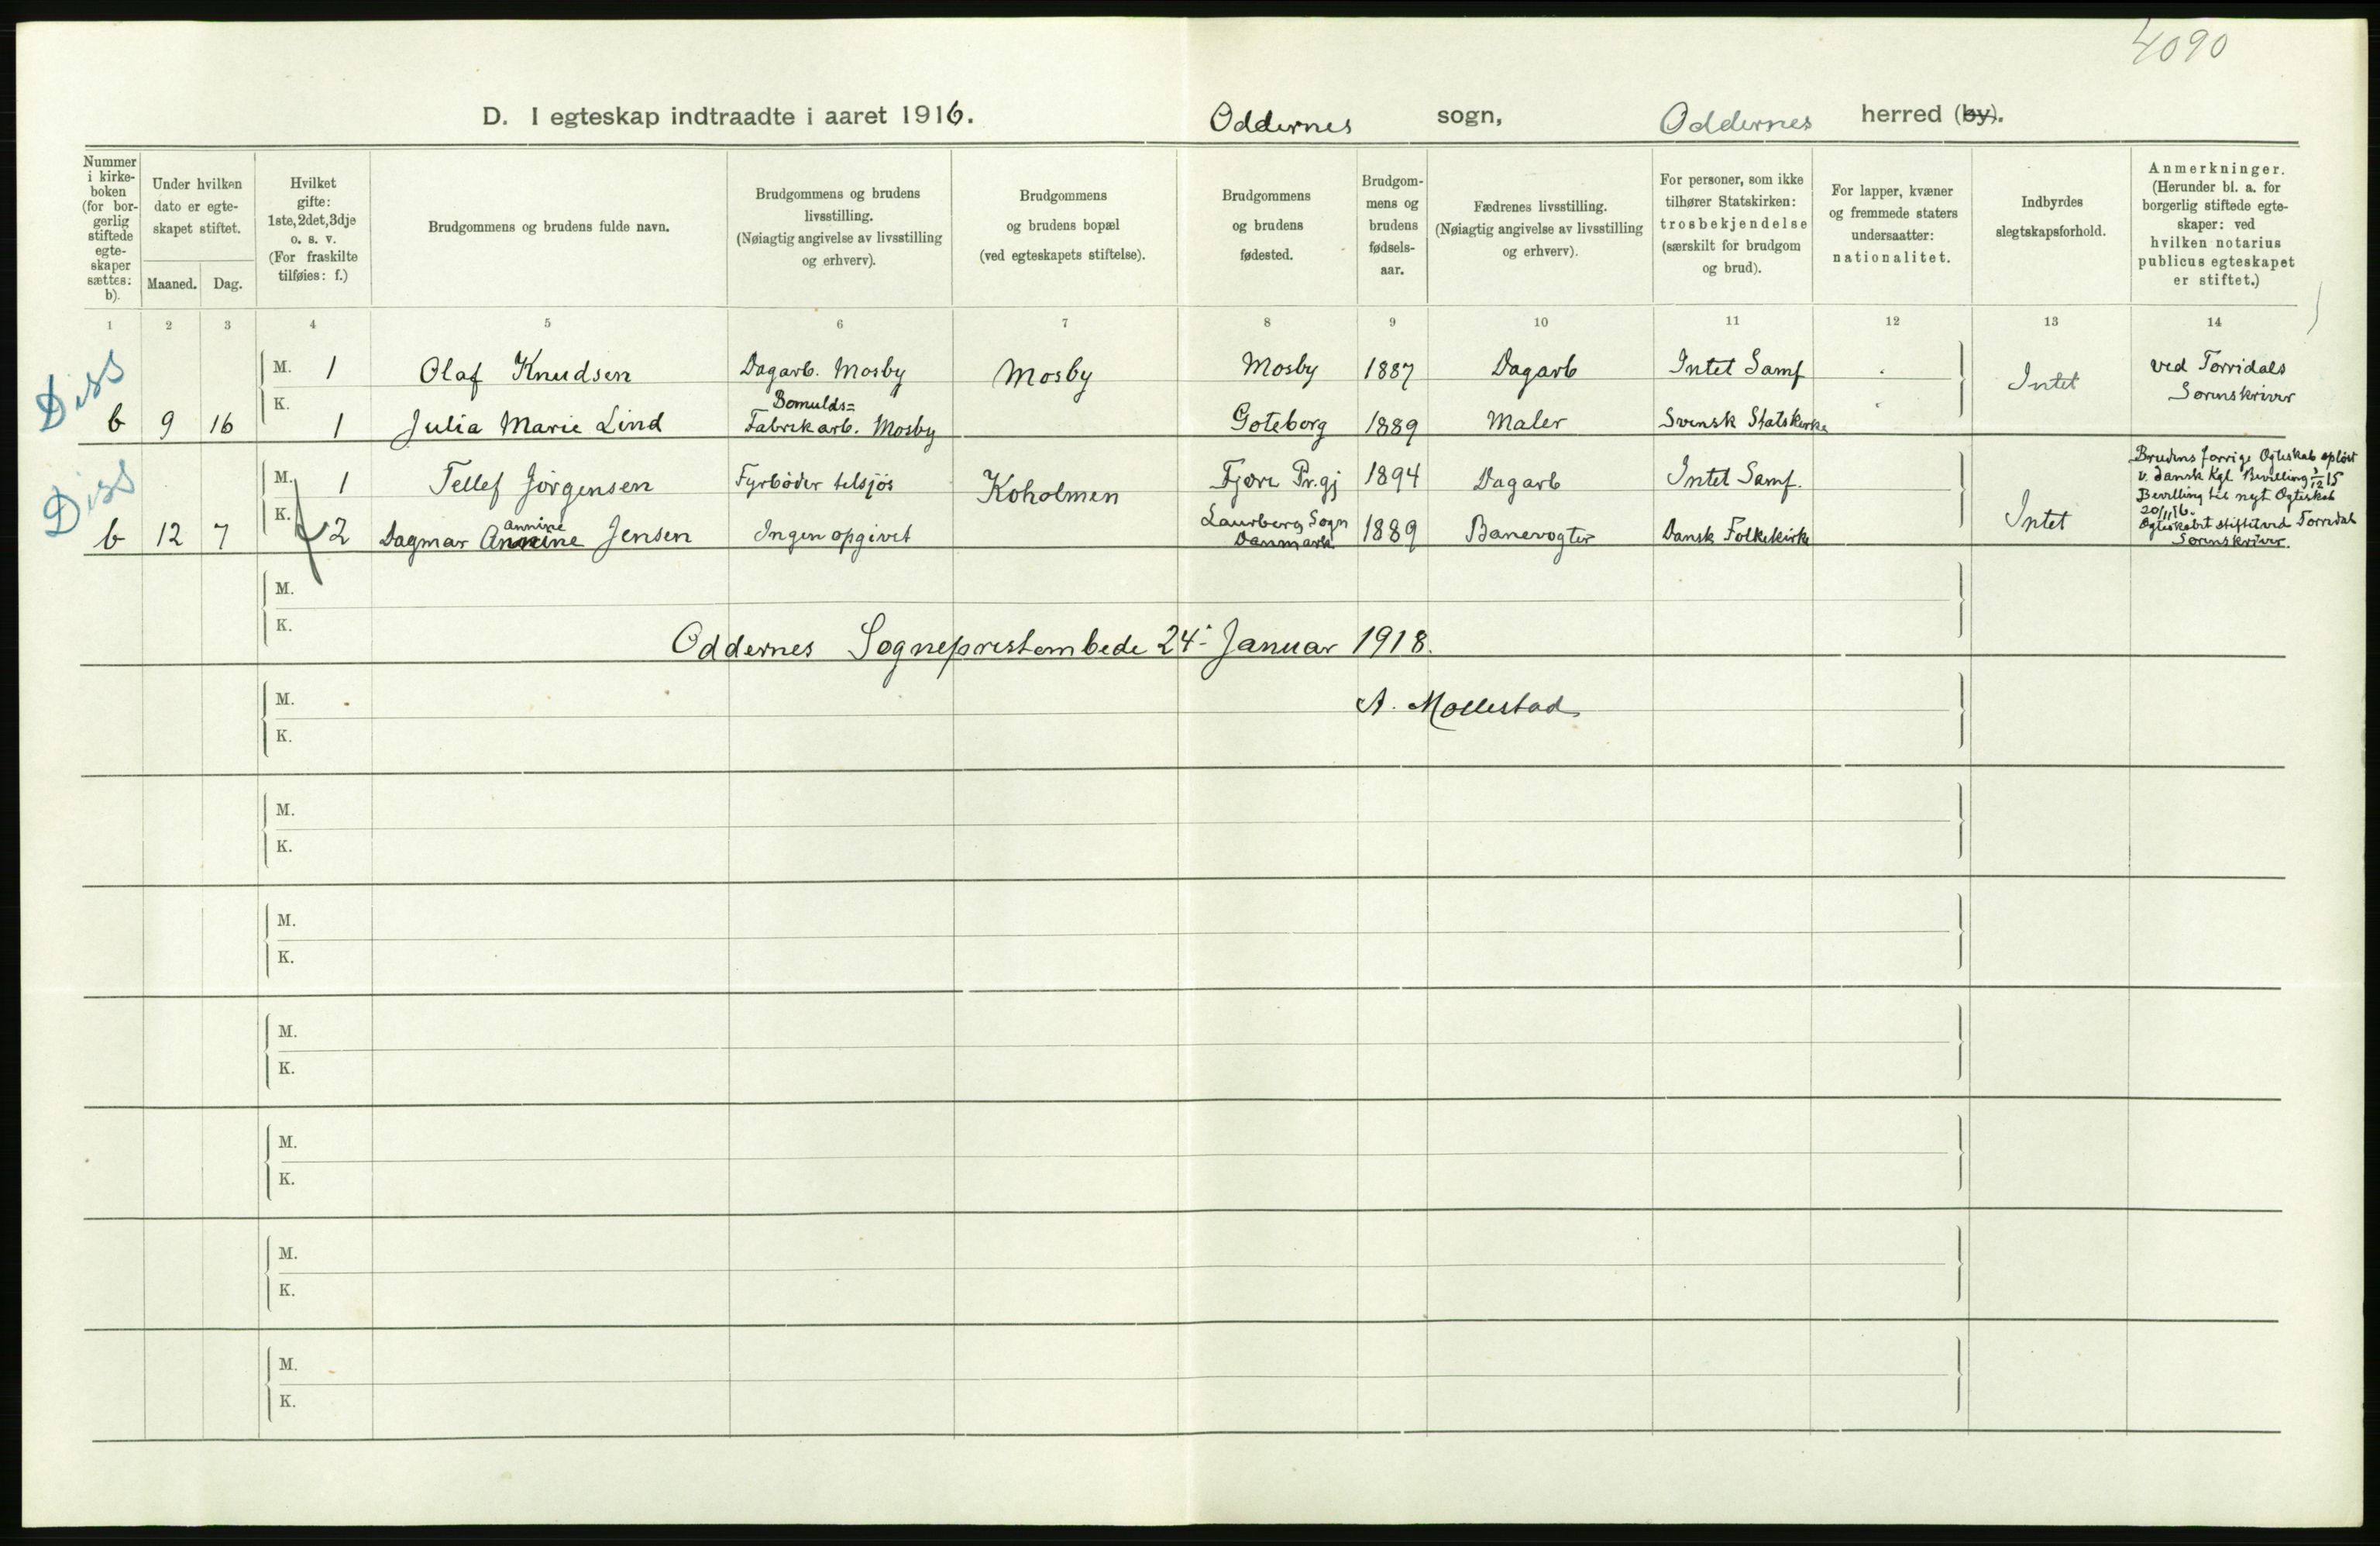 4090
D. I egteskap indtraadte i aaret 1916. Oddernes sogn, Oddernes herred (by).
Nummer i kirke-boken (for bor-gerlig stiftede egte-skaper sættes: b).
Under hvilken dato er egte-skapet stiftet.
Maaned. Dag.
Hvilket gifte: 1ste, 2det, 3dje o. s. v. (For fraskilte tilføies: f.)
Brudgommens og brudens fulde navn.
Brudgommens og brudens livsstilling. (Nøiagtig angivelse av livsstilling og erhverv).
Brudgommens og brudens bopæl (ved egteskapets stiftelse).
Brudgommens og brudens fødested.
Brudgom-mens og brudens fødsels-aar.
Fædrenes livsstilling. (Nøiagtig angivelse av livsstilling og erhverv).
For personer, som ikke tilhører Statskirken: trosbekjendelse (særskilt for brudgom og brud).
For lapper, kvæner og fremmede staters undersaatter: nationalitet.
Indbyrdes slegtskapsforhold.
Anmerkninger. (Herunder bl. a. for borgerlig stiftede egte-skaper: ved hvilken notarius publicus egteskapet er stiftet.)
1 2 3 4 5 6 7 8 9 10 11 12 13 14
Diss
M. 1 Olaf Knudsen Dagarb. Mosby Mosby Mosby 1887 Dagarb Intet Samf Intet ved Torridals Sorenskriver
b 9 16 K. 1 Julia Marie Lind Bomulds= Fabrikarb. Mosby Goteborg 1889 Maler Svensk Statskirke
Diss
M. 1 Tellef Jörgensen Fyrböder tilsjös Koholmen Fjære Pr.gj 1894 Dagarb Intet Samf. Intet
b 12 7 K. 2 Dagmar Annine Jensen Ingen opgivet Laurberg Sogn Danmark 1889 Banevogter Dansk Folkekirke
annine
Brudens forrige Ogteskab oplöst
v. dansk Kgl Bevilling 1/12 15
Bevilling til nyt Ogteskab
20/11 16.
Ogteskabet stiftet ved Torridal
Sorenskriver.
M.
K.
Oddernes Sogneprestembede 24. Januar 1918.
M.
A. Mollestad
K.
M.
K.
M.
K.
M.
K.
M.
K.
M.
K.
M.
K.